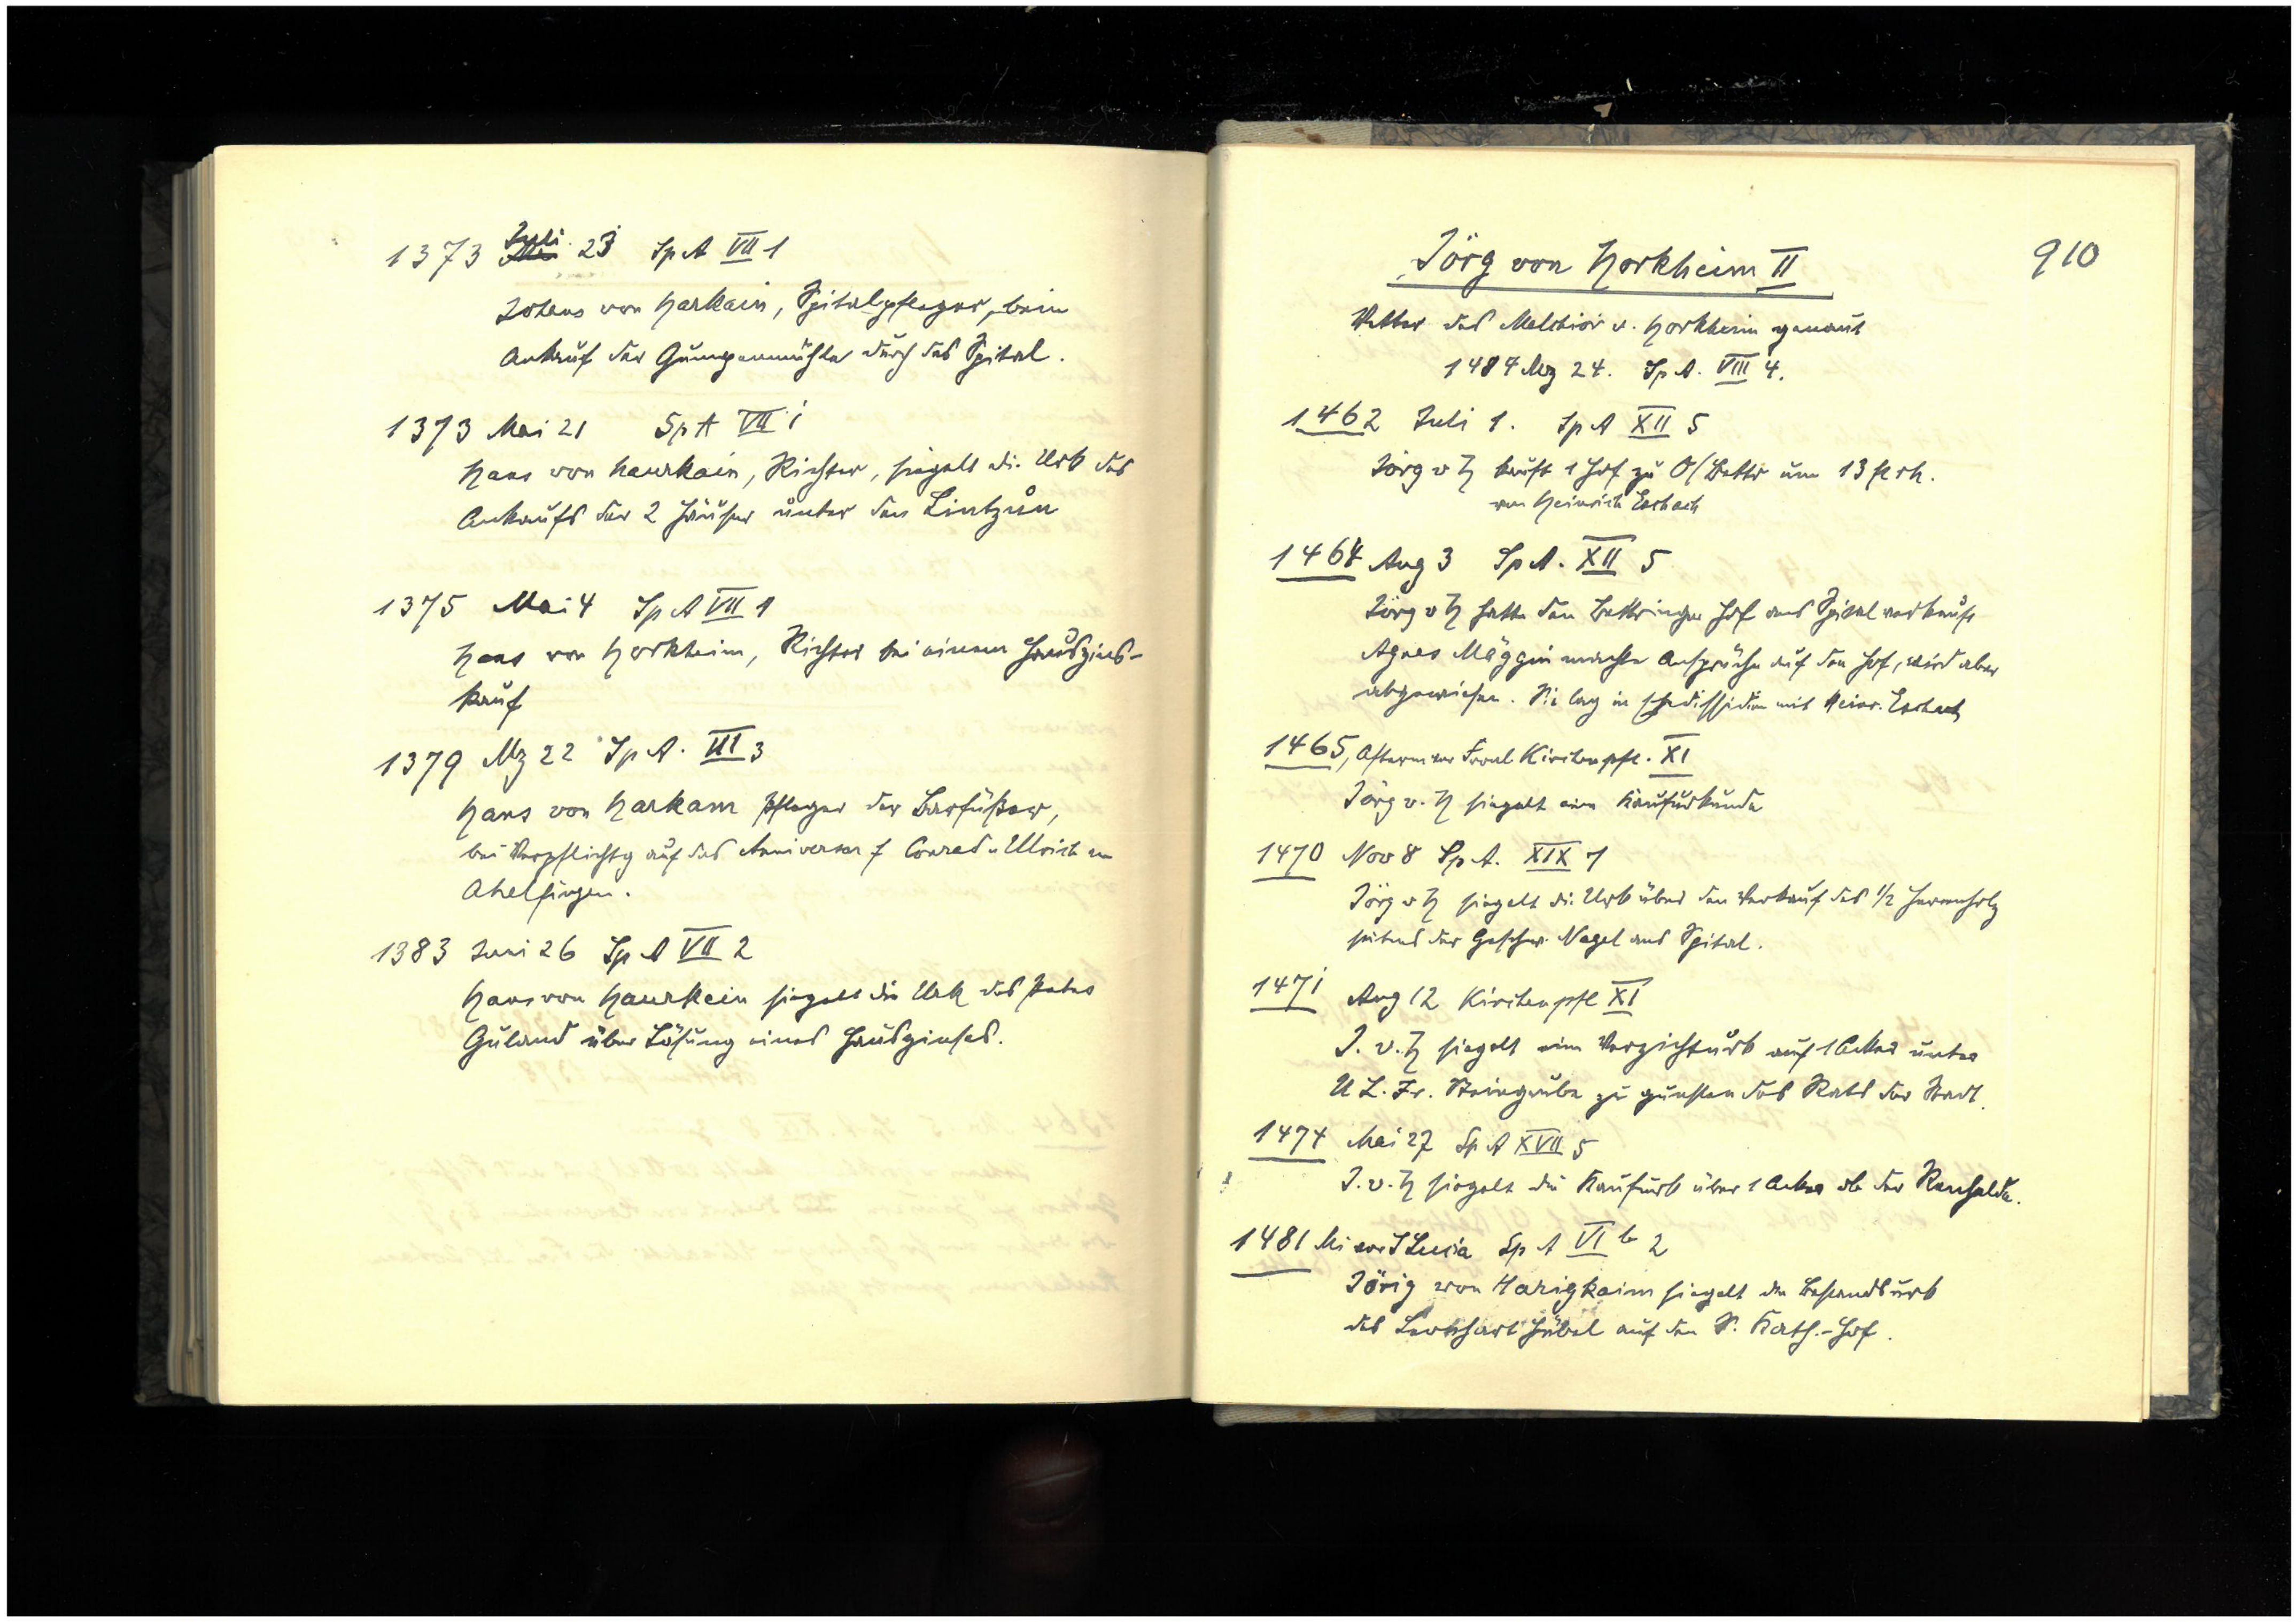 1373 Juli 23 Sp A VII 1
Johans von Harkain, Spitalpfleger, beim
Ankauf der Gumpenmühle durch das Spital.
1373 Mai 21 Sp A VII 1
Hans von Haurkain, Richter, siegelt die Urk des
Ankaufs der 2 Häuser unter den Lintzůn
1375 Mai 4 Sp A VII 1
Hans von Horkheim, Richter bei einem Hauszins-
kauf
1379 Mz 22 Sp A. VII 3
Hans von Harkam Pfleger der Barfüßer,
bei Verpflichtg auf das Anniversar f Conrad u Ulrich von
Ahelfingen.
1383 Juni 26 Sp A VII 2
Hans von Haurkein siegelt die Urk des Peter
Guland über Lösung eines Hauszinses.
910
Jörg von Horkheim II
Vetter des Melchior v. Horkheim genannt
1484 Mz 24. Sp A. VIII 4.
1462 Juli 1. Sp A XII 5
Jörg v H kauft 1 Hof zu O/Bettr um 13 fl rh.
von Heinrich Esbach
1464 Aug 3 Sp A. XII 5
Jörg v H hatte den Bettringer Hof ans Spital verkauft
Agnes Mäggin machte Ansprüche auf den Hof, wird aber
abgewiesen. Sie lag in Ehedissidien mit Heinr. Esbach
1465, Afterm vor Kirchenpfl. XI
Jörg v. H siegelt eine Kaufurkunde
1470 Nov 8 Sp A. XIX 1
Jörg v H siegelt die Urk über den Verkauf des 1/2 Herrenholz
seitens der Geschw. Nagel ans Spital.
1471 Aug 12 Kirchenpfl XI
J. v. H siegelt eine Verzichturk auf 1 Acker unter
U L. Fr. Steingrube zu gunsten des Rats der Stadt.
1474 Mai 27 Sp A XVII 5
J. v. H siegelt die Kaufurk über 1 Acker ob der Renhalde.
1481 Mi vor S Lucia Sp A VI b 2
Jörig von Harigkaim siegelt die Bestandsurk
des Lienhart Hübel auf den S. Kath.-Hof.